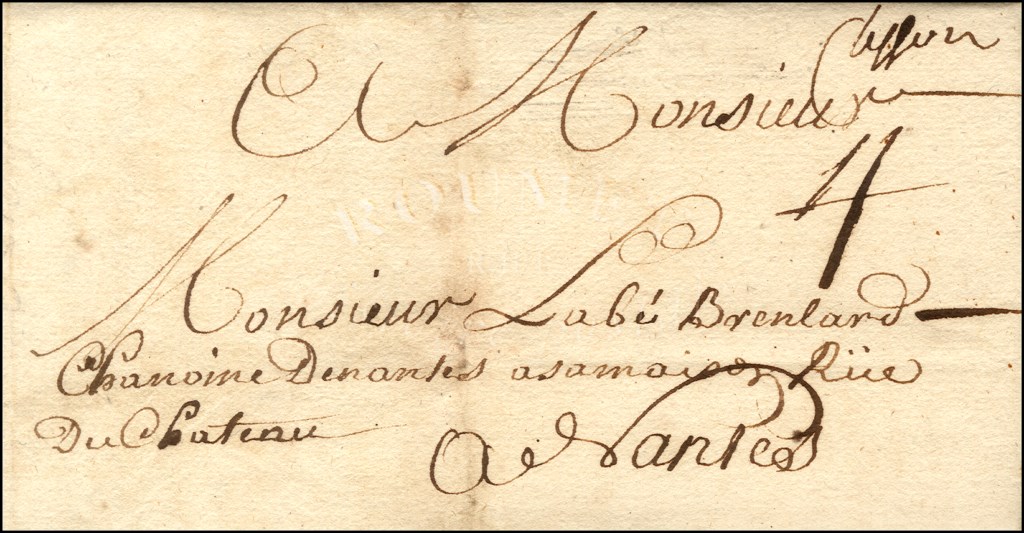 Clisson
A Monsieur
4
Monsieur Labé Brenlard
Chanoine Denantes asamaison Rüe
Du Chateau
A Nantes